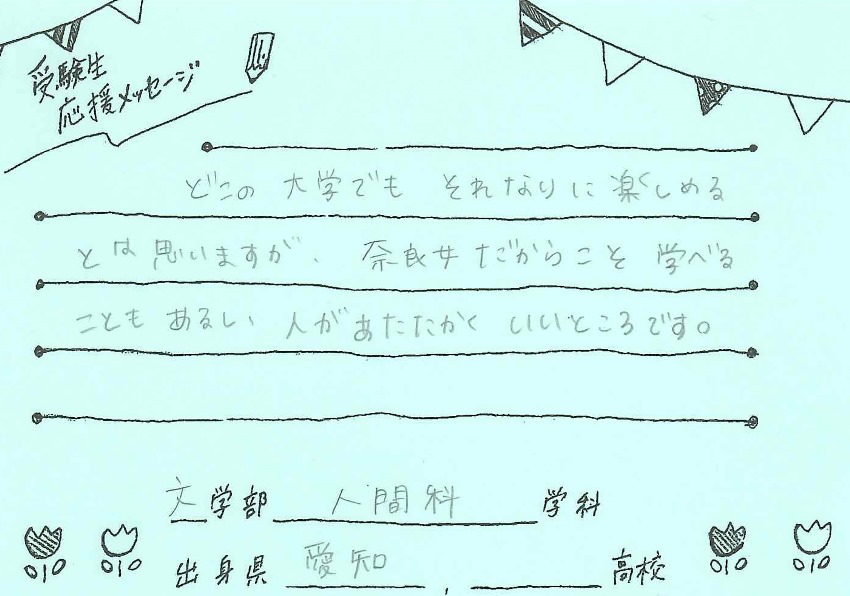 受験生
応援メッセージ
どこの 大学でも それなりに 楽しめる
とは 思いますが、 奈良女 だからこそ 学べる
ことも あるし、 人が あたたかく いいところです。
文学部 人間科 学科
出身県 愛知 , 高校